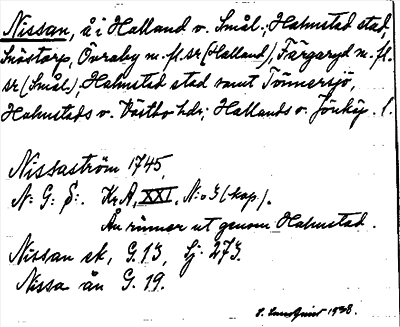 Nissan, å i Halland o. Smål.; Halmstad stad,
Snöstorp, Övraby m. fl. sr (Halland), Färgaryd m. fl.
sr (Smål.), Halmstad stad samt Tönnersjö,
Halmstads o. Västbo hdr; Hallands o. Jönköp. l.
Nissaström 1745,
N: G: S:. Kr.A, XXI, N:o 3 (kop).
Ån rinner ut genom Halmstad.
Nissan sk, G. 13, Lj. 273.
Nissa ån G. 19.
1928.